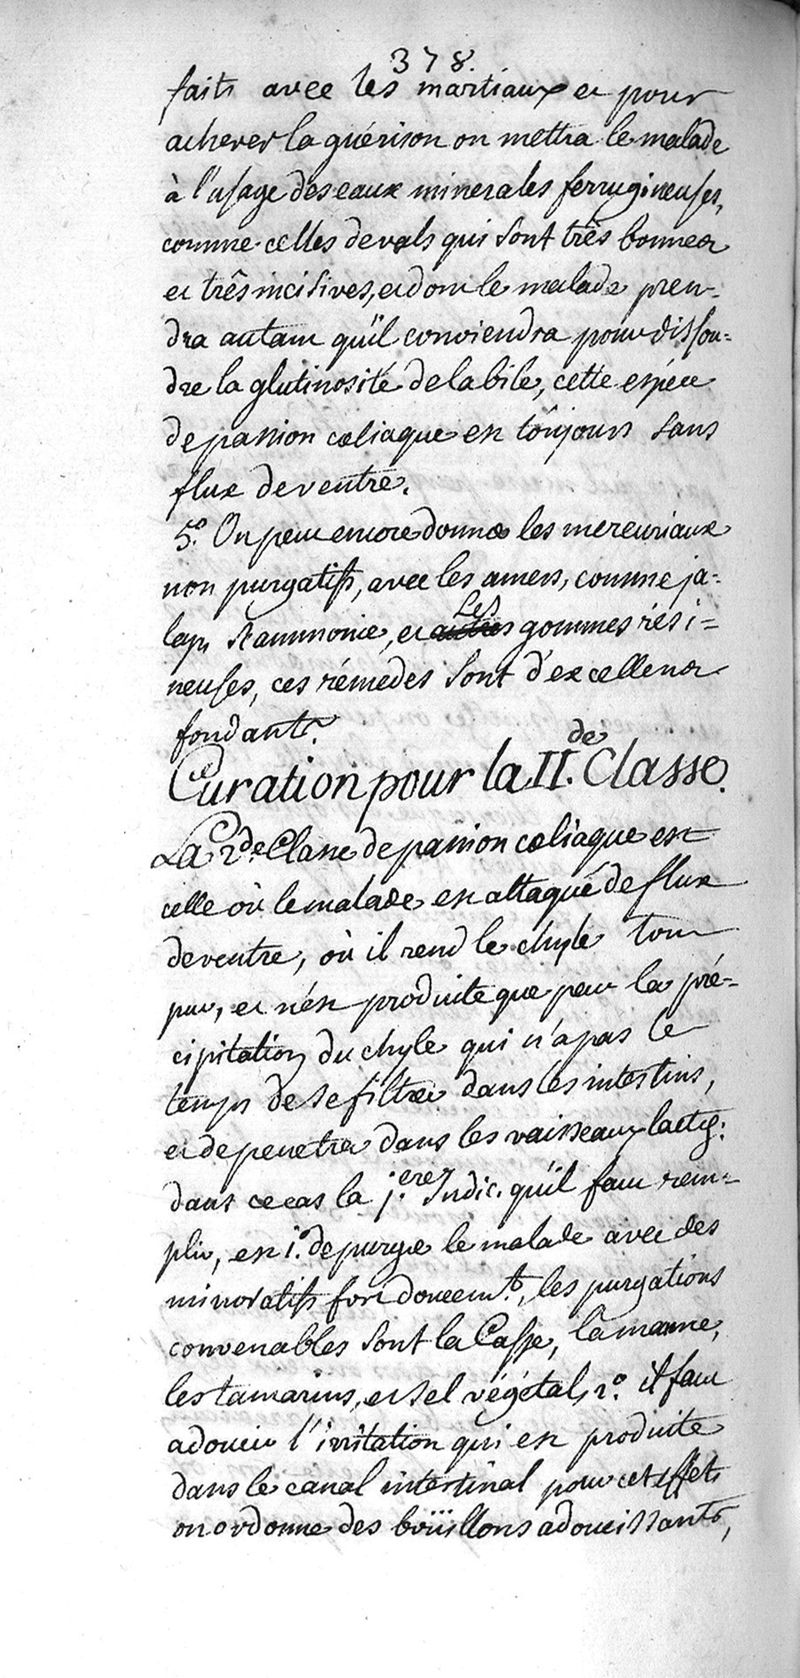 378.
faits avec les martiaux et pour
achever la guérison on mettra le malade
à l'usage des eaux minerales ferrugineuses,
comme celles de vals qui sont très bonnes
et três incisives, et dont le malade pren-
dra autant qu'il conviendra pour dissou=
dre la glutinosité de la bile, cette espéce
de passion cœliaque est toûjours sans
flux de ventre.
5.° On peut encore donner les mercuriaux
non purgatifs, avec les amers, comme ja=
lap, scammonie, et les gommes rési=
neuses, ces rémedes sont d'excellents
fondants.
Curation pour la II.de Classe.
La 2.de Classe de passion cœliaque est
celle où le malade est attaqué de flux
de ventre, où il rend le chyle tout
pur, et n'ést produite que par la pré=
cipitation du chyle qui n'a pas le
temps de se filtrer dans les intestins,
et de penetrer dans les vaisseaux lactés.
dans ce cas la j.ere Indic. qu'il faut rem=
plir, est i.° de purger le malade avec des
minoratifs fort doucem.t, les purgations
convenables sont la Casse, la manne,
les tamarins, et sel végétal, 2.° il faut
adoucir l'irritation qui est produite
dans le canal intestinal pour cet effet
on ordonne des boüillons adoucissants,